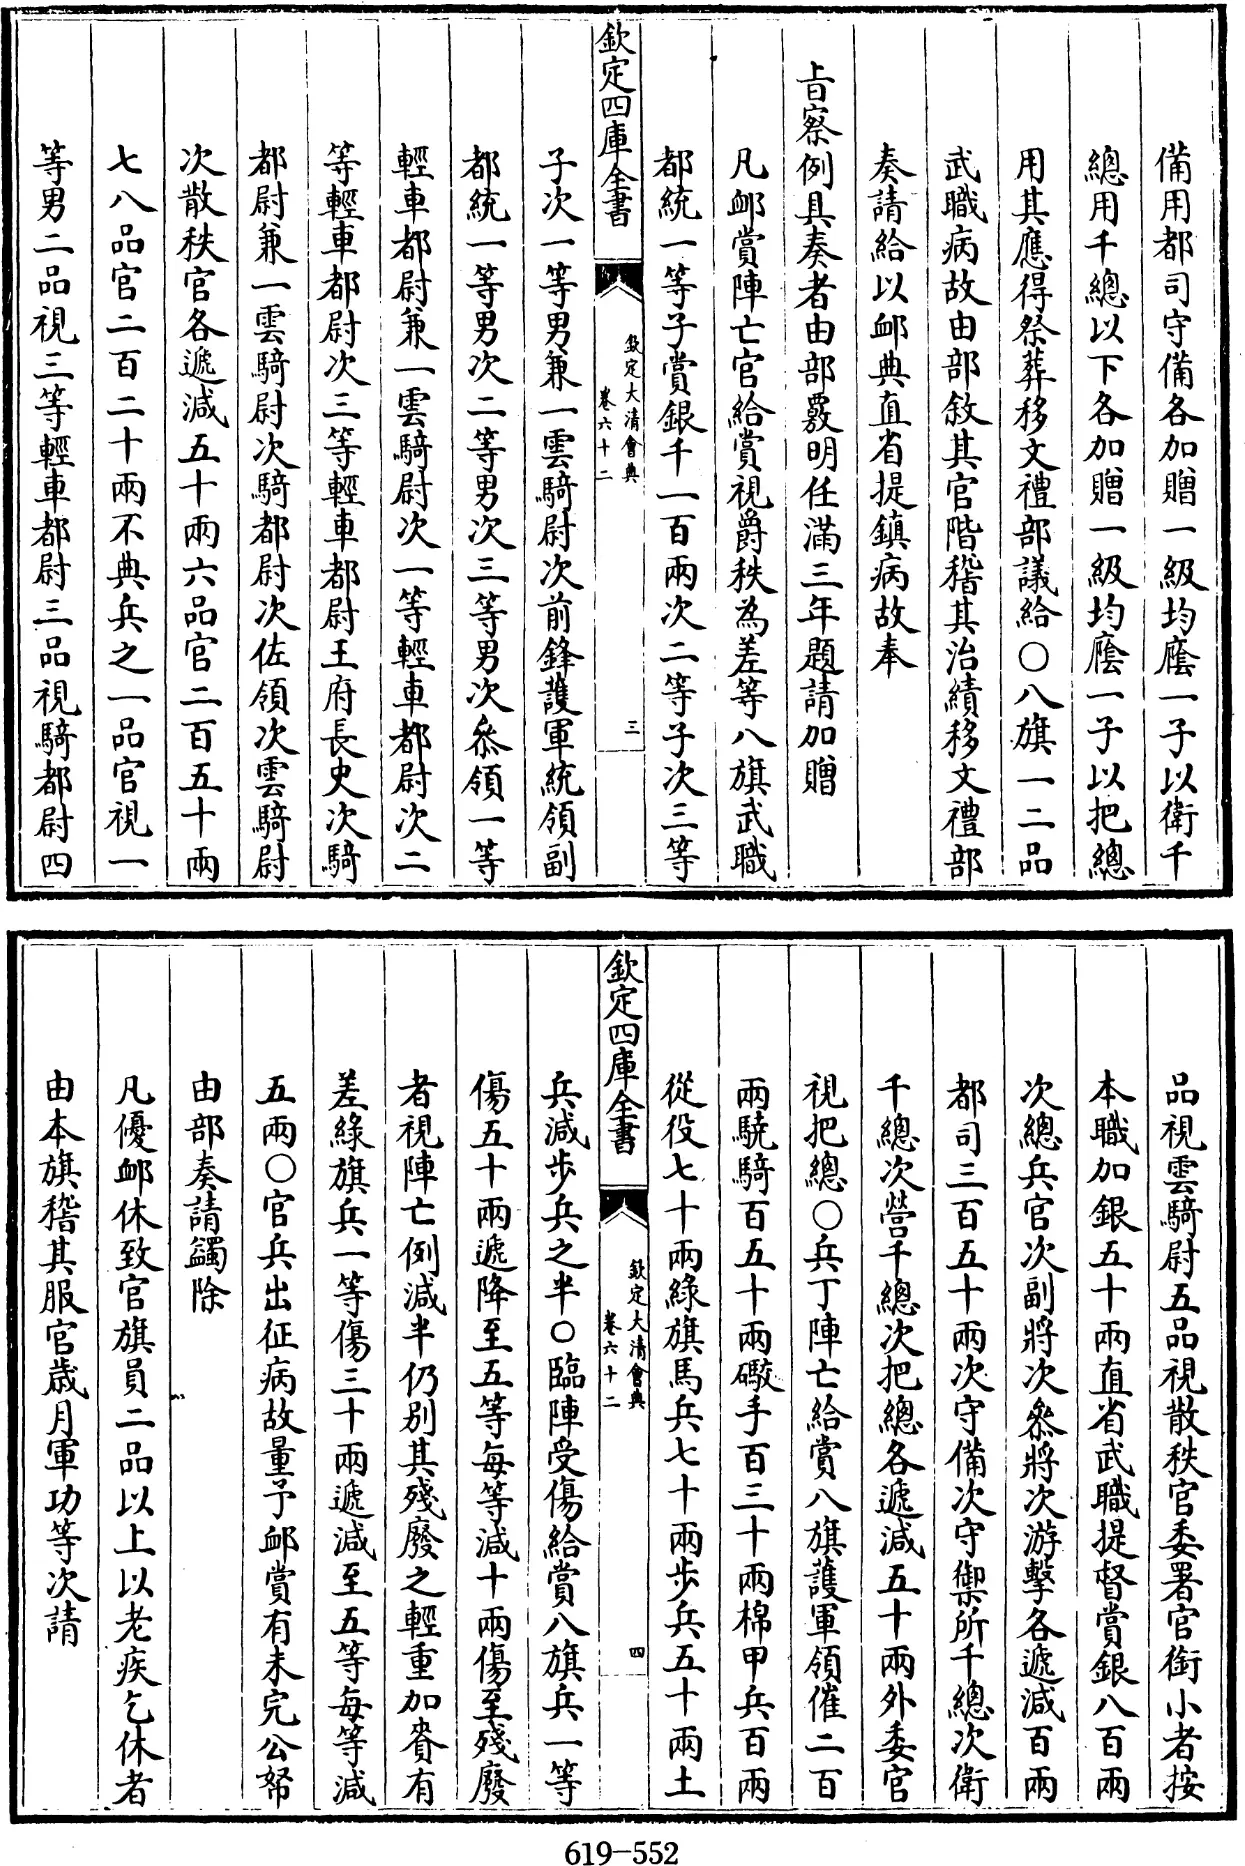 備用都司守備各加贈一級均廕一子以衛千
總用千總以下各加贈一級均廕一子以把總
用其應得祭葬移文禮部議給○八旗一二品
武職病故由部敘其官階稽其治績移文禮部
奏請給以卹典直省提鎮病故奉
旨察例具奏者由部覈明任滿三年題請加贈
凡卹賞陣亡官給賞視爵秩為差等八旗武職
都統一等子賞銀千一百兩次二等子次三等
欽定四庫全書
欽定大清會典
卷六十二
三
子次一等男兼一雲騎尉次前鋒護軍統領副
都統一等男次二等男次三等男次叅領一等
輕車都尉兼一雲騎尉次一等輕車都尉次二
等輕車都尉次三等輕車都尉王府長史次騎
都尉兼一雲騎尉次騎都尉次佐領次雲騎尉
次散秩官各遞減五十兩六品官二百五十兩
七八品官二百二十兩不典兵之一品官視一
等男二品視三等輕車都尉三品視騎都尉四
品視雲騎尉五品視散秩官委署官銜小者按
本職加銀五十兩直省武職提督賞銀八百兩
次總兵官次副將次叅將次游擊各遞減百兩
都司三百五十兩次守備次守禦所千總次衛
千總次營千總次把總各遞減五十兩外委官
視把總○兵丁陣亡給賞八旗護軍領催二百
兩驍騎百五十兩礮手百三十兩棉甲兵百兩
從役七十兩綠旗馬兵七十兩步兵五十兩土
欽定四庫全書
欽定大清會典
卷六十二
四
兵減步兵之半○臨陣受傷給賞八旗兵一等
傷五十兩遞降至五等每等減十兩傷至殘廢
者視陣亡例減半仍別其殘廢之輕重加賚有
差綠旗兵一等傷三十兩遞減至五等每等減
五兩○官兵出征病故量予卹賞有未完公帑
由部奏請蠲除
凡優卹休致官旗員二品以上以老疾乞休者
由本旗稽其服官歲月軍功等次請
619-552